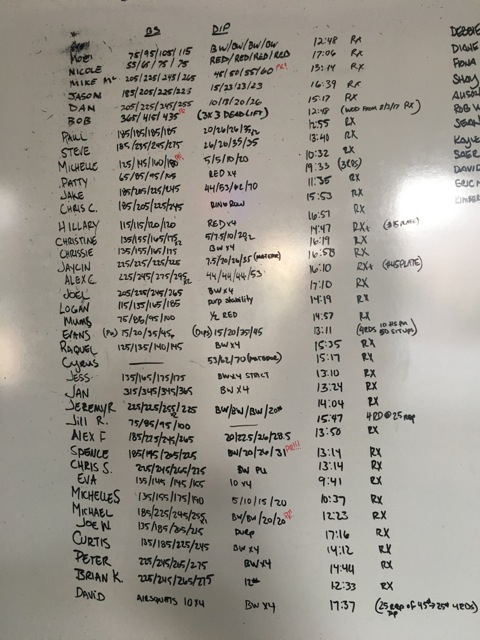 BS DIP
NOEL 75/95/105/115 BW/BW/BW/BW 12:48 RX
NICOLE 55/65/75/75 RED/RED/RED/RED 17:06 RX
MIKE Mc. 205/225/245/265 45/50/55/60 PR! 13:14 RX
JASON 185/205/225/225 15/23/23/23 16:39 RX
DAN 205/225/245/255 10/17/20/26 15:17 RX
BOB 365/415/435 (3X3 DEADLIFT) 12:48 (WOD FROM 8/2/17 RX)
PAUL 185/185/185/185 12:55 RX
STEVE 185/235/245/275 26/20/35/35 13:40 RX
MICHELLE 125/145/160/180 5/5/10/20 10:32 RX
PATTY 65/85/95/105 RED X4 19:33 (3RDS) RX
JAKE 185/205/225/245 44/53/62/70 11:35 RX
CHRIS C. 185/205/225/245 RING ROW 15:53 RX
HILLARY 115/115/120/120 RED X4 16:57 RX
CHRISTINE 135/155/165/175 14:47 RX+
CHRISSIE 135/155/165/175 BW X4 16:19 RX
JAYLIN 225/225/225/225 7.5/20/26/35 16:58 RX
ALEX C. 225/245/275/295 44/44/44/53 16:10 RX+ (#45 PLATE)
JOEL 205/225/245/265 BW X4 17:10 RX
LOGAN 115/135/165/185 purp stability 14:19 RX
MUMS 75/85/95/100 1/2 RED 14:57 RX
EVANS 15/20/35/45 (Dips) 15/20/35/45 13:11 (4RDS 50 SITUPS)
RAQUEL 125/135/140/145 BW X4 15:35 RX
CYRUS —— 53/62/70 15:17 RX
JESS 135/165/175/175 BW X4 STRICT 13:10 RX
JAN 315/345/345/365 BW X4 13:24 RX
JEREMY R 225/225/255/225 BW/BW/BW/20 14:04 RX
Jill R. 75/85/95/100 —— 15:47 4RD @ 25 rep
ALEX F 185/225/245/265 20/22.5/26/28.5 13:50 RX
SPENCE 185/195/205/225 BW/20/26/31 PR!!! 13:14 RX
CHRIS S. 225/245/265/275 BW PU 13:14 RX
EVA 135/145/145/165 10 X4 9:41 RX
MICHELLE S 135/155/175/190 5/10/15/20 10:37 RX
MICHAEL 185/225/245/255 BW/BW/20/20 12:23 RX
JOE W. 135/185/205/215 purp 17:16 RX
CURTIS 135/185/225/245 BW X4 14:12 RX
PETER 225/245/265/275 BW X4 14:44 RX
BRIAN K. 225/245/265/275 12:33 RX
DAVID AIRSQUATS 10X4 BW X4 17:37
DEBBIE
DIANE
FIONA
SHAY
BOB W
SEAN
KAYLE
DAVID
ERIC M